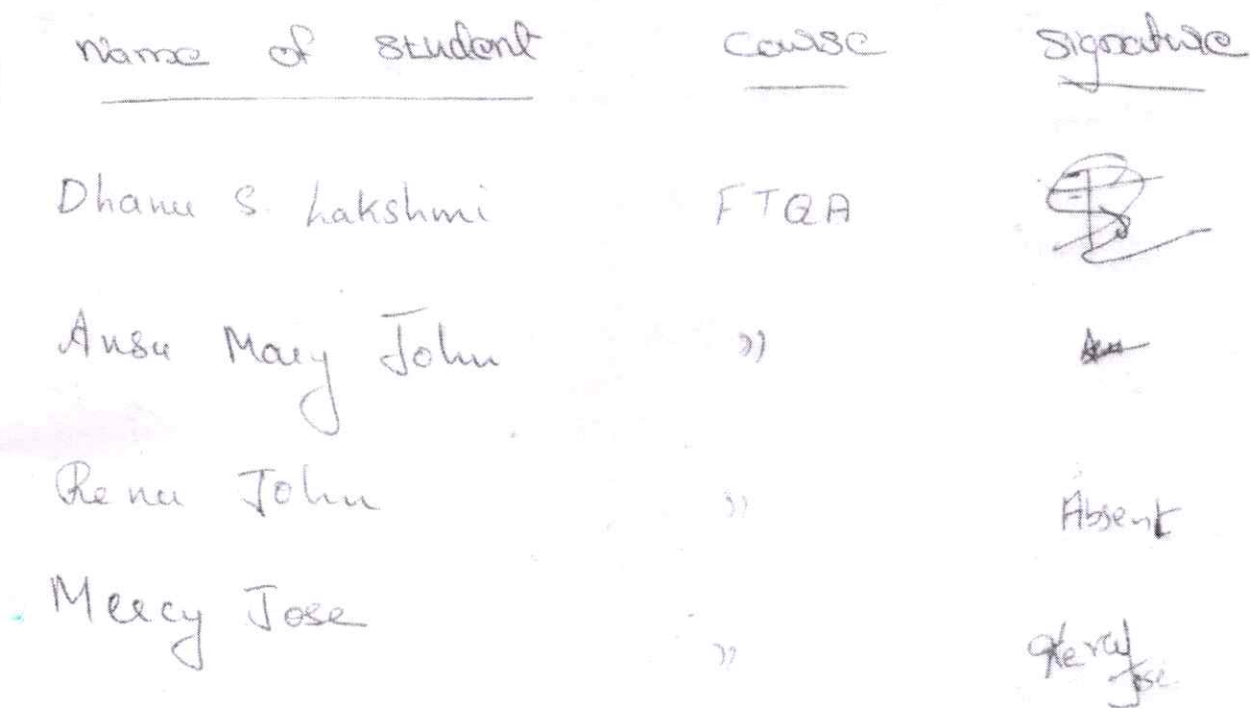 Name of student course signature
Dhanu S. Lakshmi FTQA
Ansu Mary John ))
Renu John )) Absent
Mercy Jose )) Mercy Jose